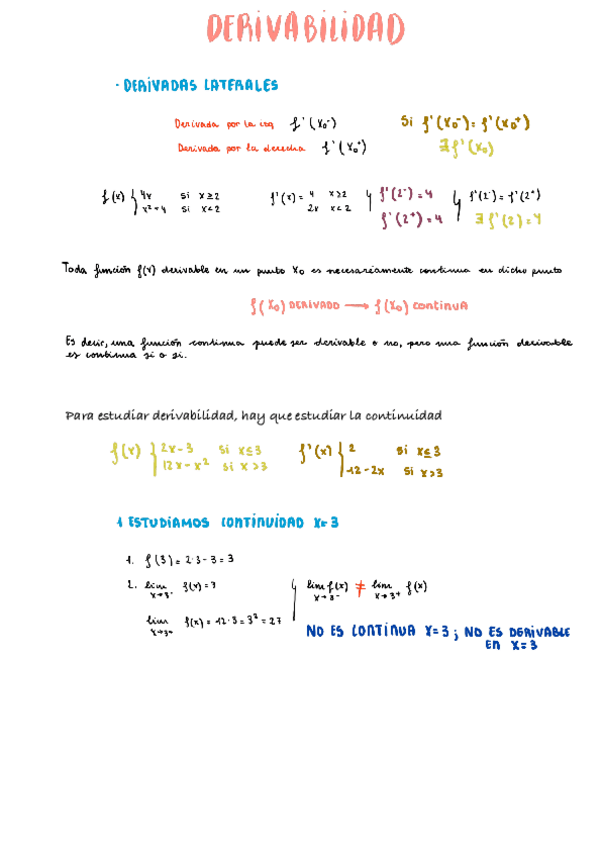 DERIVABILIDAD
· DERIVADAS LATERALES
Derivada por la izq f'(x₀⁻) Si f'(x₀⁻) = f'(x₀⁺)
Derivada por la derecha f'(x₀⁺) ∃ f'(x₀)
f(x) { 4x si x≥2 f'(x) = 4 x≥2 f'(2⁻) = 4 f'(2⁻) = f'(2⁺)
x²+4 si x<2 2x x<2 f'(2⁺) = 4 ∃ f'(2) = 4
Toda función f(x) derivable en un punto x₀ es necesariamente continua en dicho punto
f(x₀) DERIVADO → f(x₀) continua
Es decir, una función continua puede ser derivable o no, pero una función derivable
es continua si o si.
Para estudiar derivabilidad, hay que estudiar la continuidad
f(x) { 2x-3 si x≤3 f'(x) { 2 si x≤3
12x-x² si x>3 12-2x si x>3
1 ESTUDIAMOS CONTINUIDAD x=3
1. f(3) = 2·3-3 = 3
2. lim x→3⁻ f(x) = 3 lim x→3⁻ f(x) ≠ lim x→3⁺ f(x)
lim x→3⁺ f(x) = 12·3-3² = 27
NO ES CONTINUA X=3 ; NO ES DERIVABLE
EN X=3